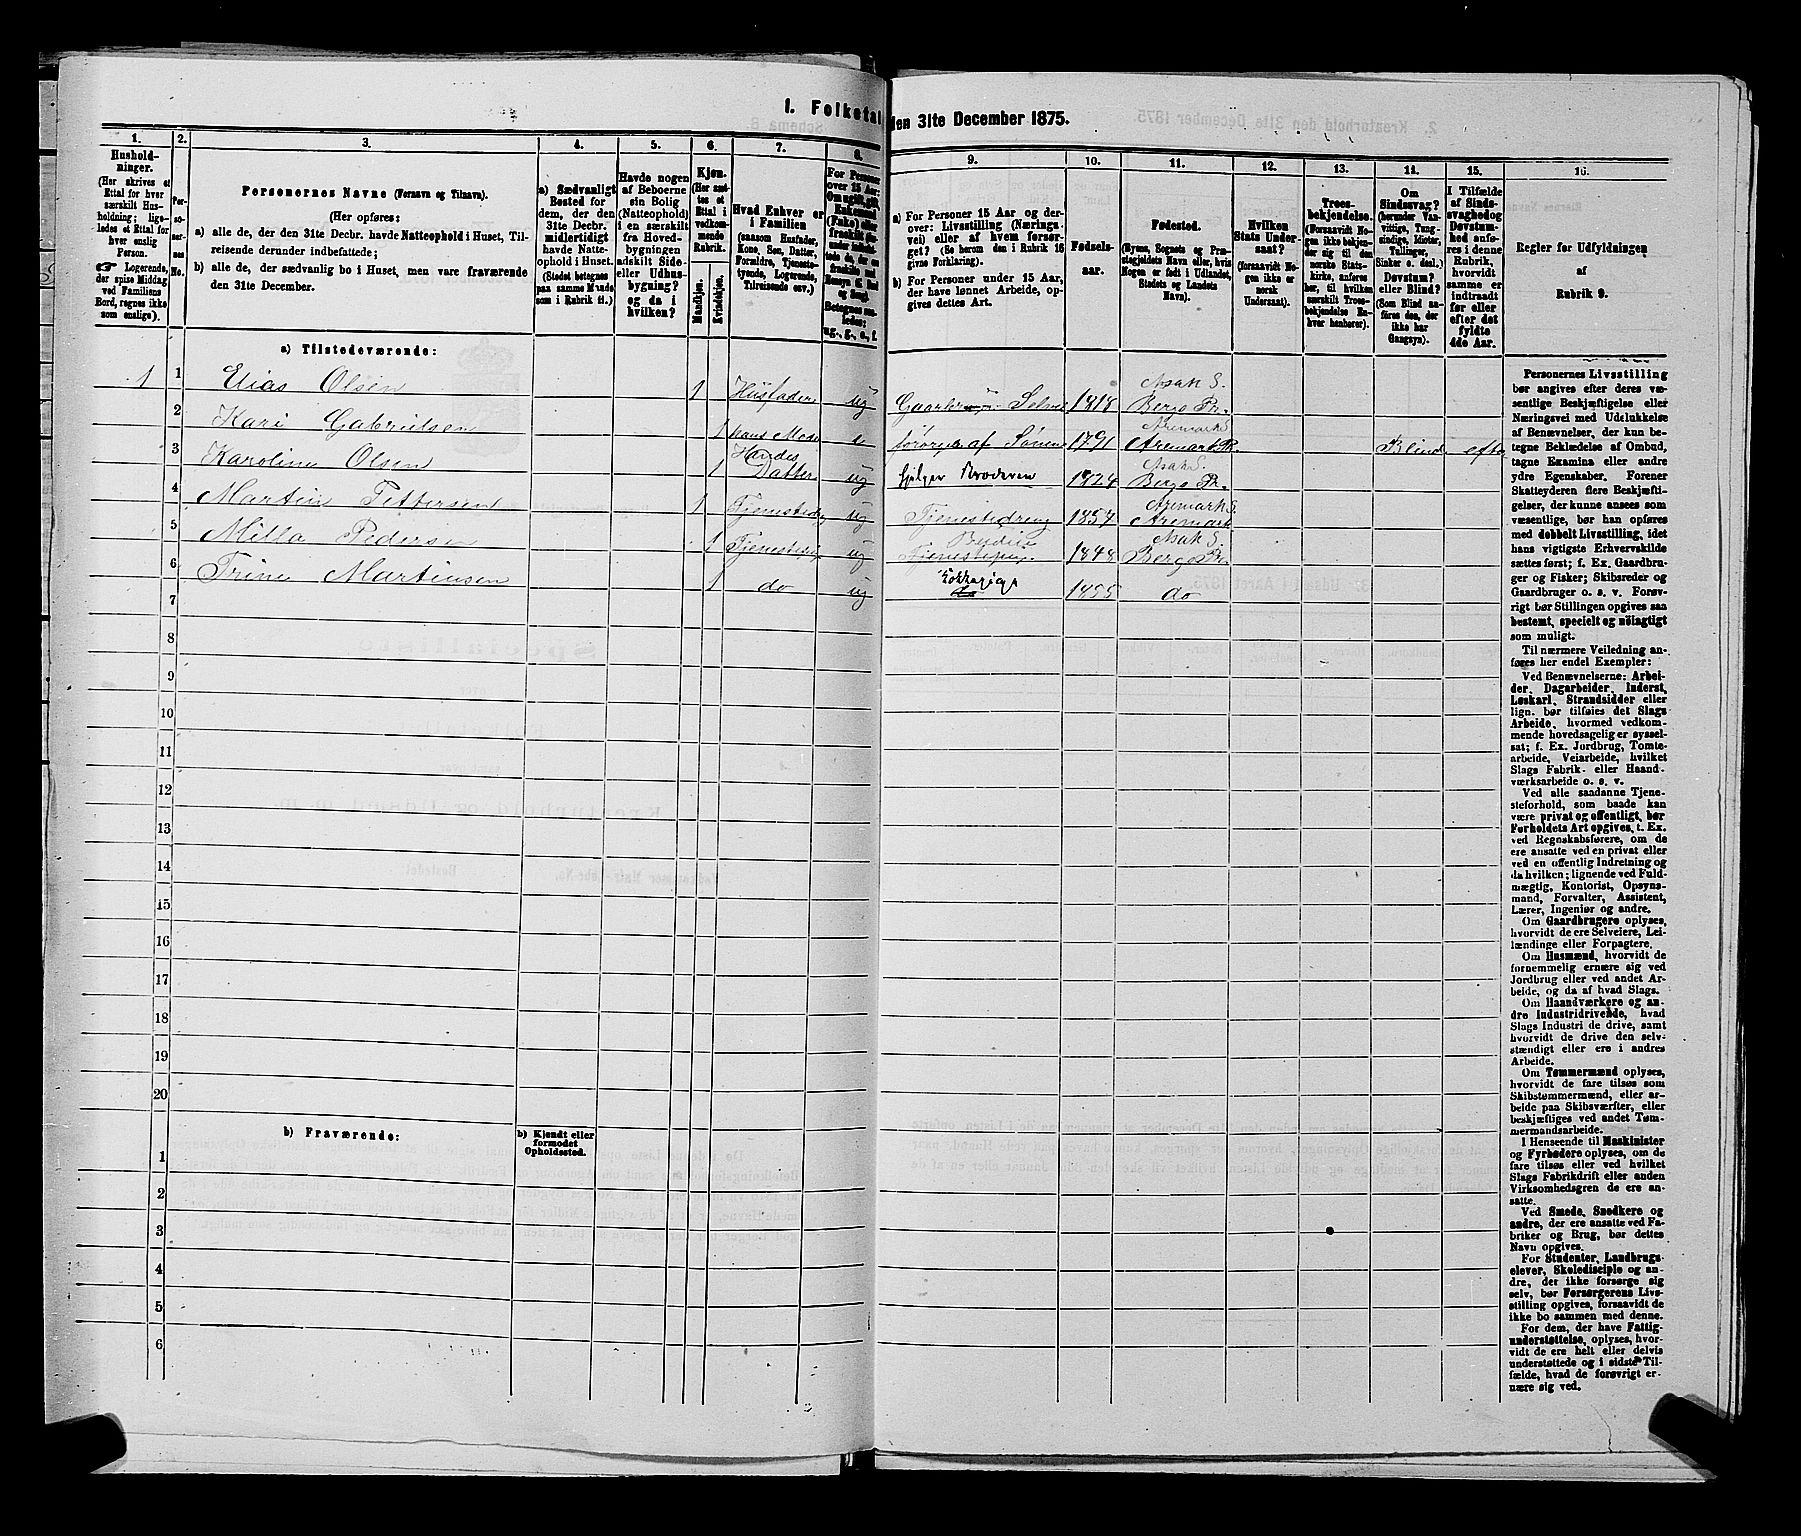 I. Folketal
den 31te December 1875.
1.
Hushold-
ninger.
(Her skrives et
Ettal for hver
særskilt Hus-
holdning; lige-
ledes et Ettal for
hver enslig
Person.
☞ Logerende,
der spise Middag
ved Familiens
Bord, regnes ikke
som enslige).
2.
Per-
so-
ner-
nes
No.
3.
Personernes Navne (Fornavn og Tilnavn).
(Her opføres:
a) alle de, der den 31te Decbr. havde Natteophold i Huset, Til-
reisende derunder indbefattede;
b) alle de, der sædvanlig bo i Huset, men vare fraværende
den 31te December.
4.
a) Sædvanligt
Bosted for
dem, der den
31te Decbr.
midlertidigt
havde Natte-
ophold i Huset.
(Stedet betegnes
paa samme Maade
som i Rubrik 11.)
5.
Havde nogen
af Beboerne
sin Bolig
(Natteophold)
i en særskilt
fra Hoved-
bygningen
adskilt Side-
eller Udhus-
bygning?
og da i
hvilken?
6.
Kjøn.
(Her sæt-
tes et
Ettal i
vedkom-
mende
Rubrik.
Mandkjøn.
Kvindekjøn.
7.
Hvad Enhver er
i Familien
(saasom Husfader,
Kone, Søn, Datter,
Forældre, Tjeneste-
tyende, Logerende,
Tilreisende osv.)
8.
For Personer
over 15 Aar:
Om ugift, gift,
Enkemand
(Enke) eller
fraskilt
ug., g., e., f.
9.
a) For Personer 15 Aar og der-
over: Livsstilling (Nærings-
vei) eller af hvem forsør-
get? (Se herom den i Rubrik 16
givne Forklaring.)
b) For Personer under 15 Aar,
der have lønnet Arbeide, op-
gives dettes Art.
10.
Fødsels-
aar.
11.
Fødested.
(Byens, Sognets og Præ-
stegjeldets Navn eller, hvis
Nogen er født i Udlandet,
Stedets og Landets
Navn).
12.
Hvilken
Stats Under-
saat?
(forsaavidt No-
gen ikke er
norsk
Undersaat).
13.
Troes-
bekjendelse.
(Forsaavidt No-
gen ikke bekjen-
der sig til den
norske Stats-
kirke, anføres
her, til hvilken
særskilt Troes-
bekjendelse En-
hver henhører).
14.
Om
Sindssvag?
(herunder Van-
vittige, Tung-
sindige, Idioter,
Tullinger,
Sinker o. desl.)
Døvstum?
eller Blind?
(Som Blind an-
føres den, der
ikke har
Gangsyn).
15.
I Tilfælde
af Sinds-
svaghed og
Døvstum-
hed anfø-
res i denne
Rubrik,
hvorvidt
samme er
indtraadt
før eller
efter det
fyldte
4de Aar.
16.
Regler for Udfyldningen
af
Rubrik 9.
a) Tilstedeværende:
1 1 Elias Olsen 1 Husfader ug Selve 1818 Asak S. Bergs Pr.
2 Kari Gabrielsen 1 hans Mode e af Sønnen 1791 Aremark S. Aremark Pr. Blind efter
3 Karoline Olsen 1 Hendes Datter ug hjelper Broderen 1824 Asak S. Bergs Pr.
4 Martin Pettersen 1 Tjenestedreng ug Tjenestedreng 1857 Aremark S. Aremark
5 Milla Pedersen 1 Tjenestepige ug Budeie Tjenestepige 1848 Asak S. Bergs Pr.
6 Trine Martinsen 1 do ug Kokkepige do 1855 do
7
8
9
10
11
12
13
14
15
16
17
18
19
20
b) Fraværende:
b) Kjendt eller
formodet
Opholdssted.
1
2
3
4
5
6
Personernes Livsstilling
bør angives efter deres væ-
sentlige Beskjæftigelse eller
Næringsvei med Udelukkelse
af Benævnelser, der kun be-
tegne Beklædelse af Ombud,
tagne Examina eller andre
ydre Egenskaber. Forener
Skatteyderen flere Beskjæfti-
gelser, der kunne ansees som
væsentlige, bør han opføres
med dobbelt Livsstilling, idet
hans vigtigste Erhvervskilde
sættes først; f. Ex. Gaardbru-
ger og Fisker; Skibsreder og
Gaardbruger o. s. v. Forøv-
rigt bør Stillingen opgives saa
bestemt, specielt og nøiagtigt
som muligt.
Til nærmere Veiledning an-
føres her endel Exempler:
Ved Benævnelserne: Arbei-
der, Dagarbeider, Inderst,
Løskarl, Strandsidder eller
lign. bør tilføies det Slags
Arbeide, hvormed vedkom-
mende hovedsagelig er syssel-
sat; f. Ex. Jordbrug, Tomte-
arbeide, Veiarbeide, hvilket
Slags Fabrik- eller Haand-
værksarbeide o. s. v.
Ved alle saadanne Tjene-
steforhold, som baade kan
være privat og offentligt, bør
Forholdets Art opgives, t. Ex.
ved Regnskabsførere, om de
ere ansatte ved en privat eller
ved en offentlig Indretning og
da hvilken; lignende ved Fuld-
mægtig, Kontorist, Opsyns-
mand, Forvalter, Assistent,
Lærer, Ingeniør og andre.
Om Gaardbrugere oplyses,
hvorvidt de ere Selveiere, Lei-
lændinge eller Forpagtere.
Om Husmænd, hvorvidt de
fornemmelig ernære sig ved
Jordbrug eller ved andet Ar-
beide, og da af hvad Slags.
Om Haandværkere og an-
dre Industridrivende, hvad
Slags Industri de drive, samt
hvorvidt de drive den selv-
stændigt eller ere i andres
Arbeide.
Om Tømmermænd oplyses,
hvorvidt de fare tilsøs som
Skibstømmermænd, eller ar-
beide paa Skibsværfter, eller
beskjæftiges ved andet Tøm-
mermandsarbeide.
I Henseende til Maskinister
og Fyrbødere oplyses, om de
fare tilsøs eller ved hvilket
Slags Fabrikdrift eller anden
Virksomhedsgren de ere an-
satte.
Ved Smede, Snedkere og
andre, der ere ansatte ved Fa-
briker og Brug, bør dettes
Navn opgives.
For Studenter, Landbrugs-
elever, Skoledisciple og an-
dre, der ikke forsørge sig
selv, bør Forsørgerens Livs-
stilling opgives, forsaavidt de
ikke bo sammen med denne.
For dem, der have Fattig-
understøttelse, oplyses, hvor-
vidt de ere helt eller delvis
understøttede og i sidste Til-
fælde, hvad de forøvrigt er-
nære sig ved.